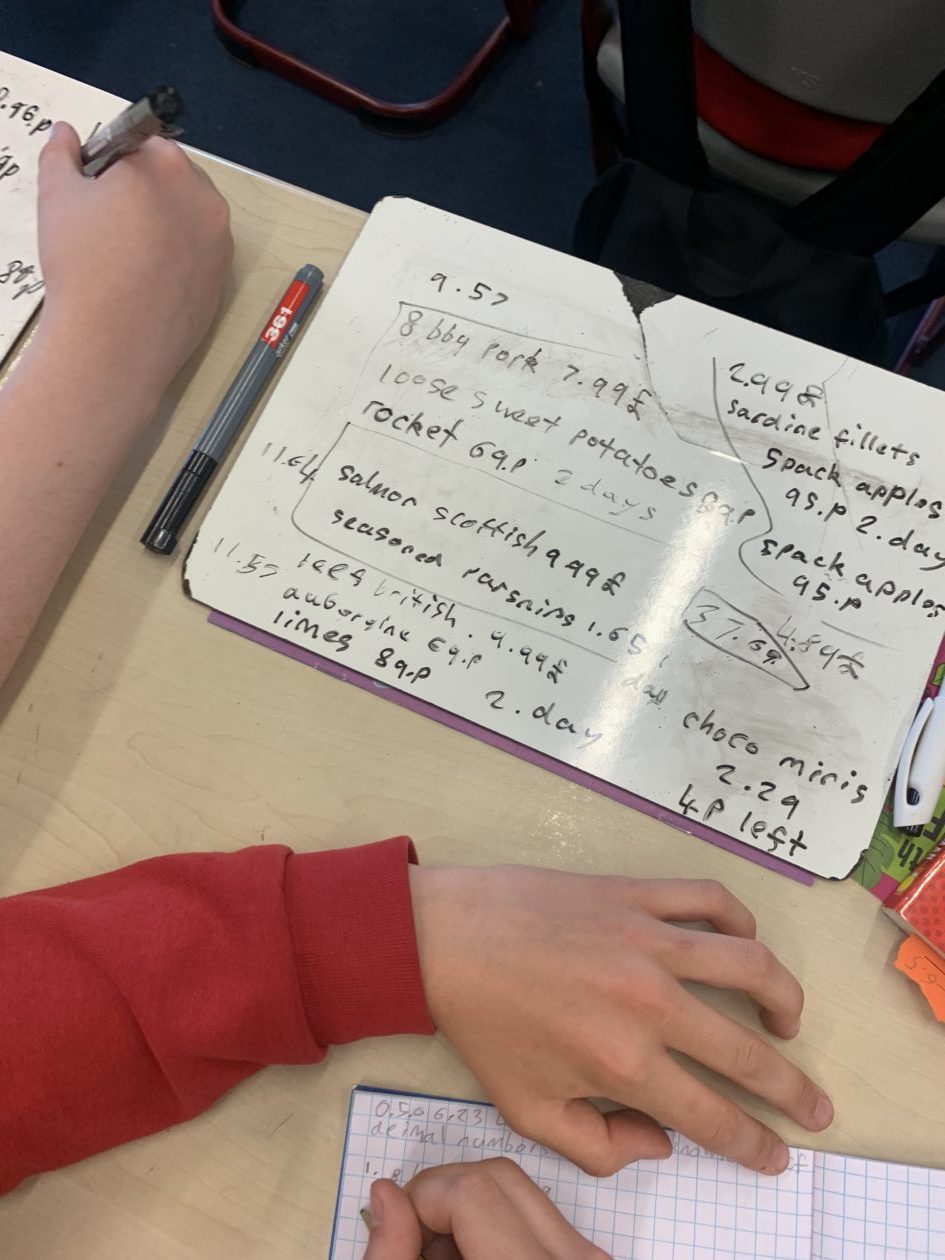 9.57
8 bbq pork 7.99£
loose sweet potatoes 89p
rocket 69.p 2 days
11.64
salmon scottish 9.99£
seasored parsnips 1.65
11.57
british. 9.99£
aubergine 69.p
limes 89.p
2.day
2.99£
sardine fillets
5pack apples
95.p 2.day
5pack apples
95.p
4.89£
37.69
day
choco minis
2.29
4p left
361
decimal numbers
1. 8